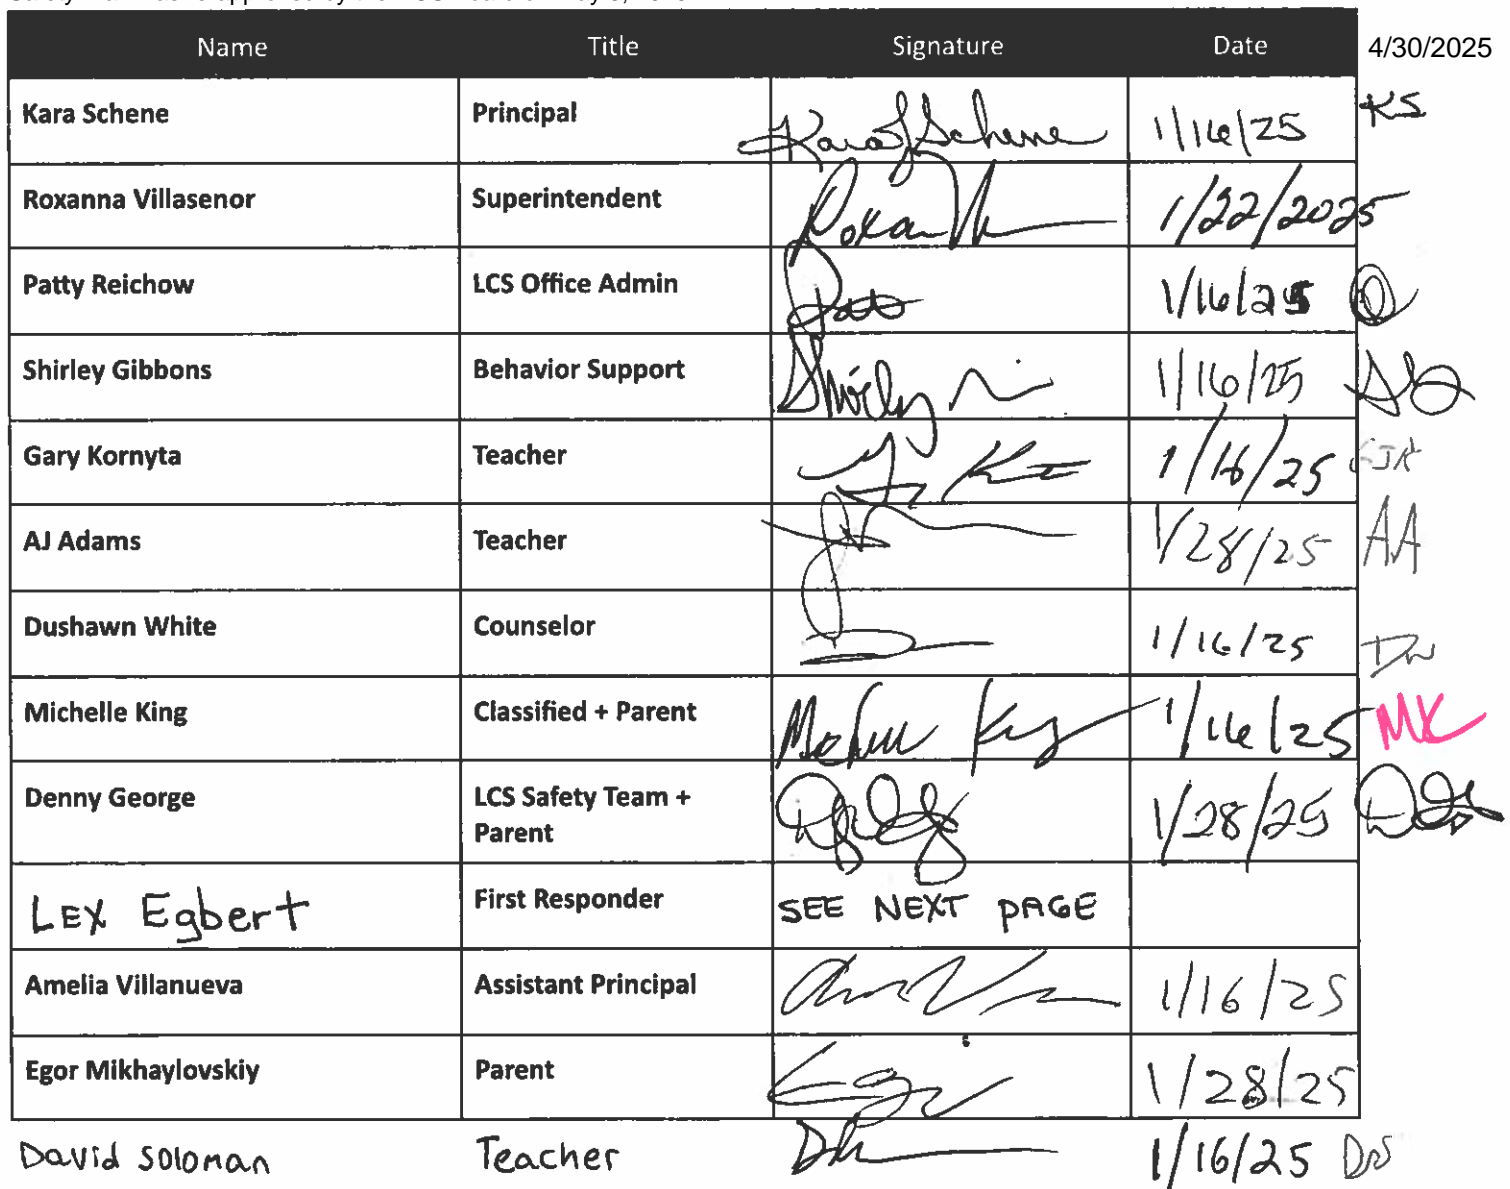 Name Title Signature Date 4/30/2025
Kara Schene Principal Kara J Schene 1/16/25 KS
Roxanna Villasenor Superintendent 1/22/2025
Patty Reichow LCS Office Admin 1/16/25
Shirley Gibbons Behavior Support Shirley 1/16/25 SG
Gary Kornyta Teacher 1/16/25 GJK
AJ Adams Teacher 1/28/25 AA
Dushawn White Counselor 1/16/25 DW
Michelle King Classified + Parent 1/16/25 MK
Denny George LCS Safety Team +
Parent 1/28/25
LEX Egbert First Responder SEE NEXT PAGE
Amelia Villanueva Assistant Principal 1/16/25
Egor Mikhaylovskiy Parent 1/28/25
David Soloman Teacher 1/16/25 DS